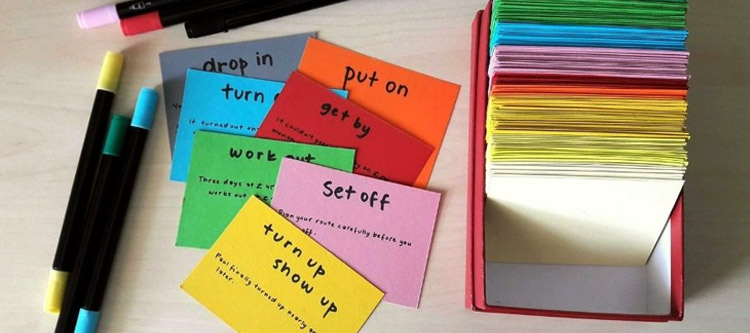 drop in
put on
turn
It turned out th
get by
It couldn't
work out
Three days at £
works out
Set off
Plan your route carefully before you
off.
turn up
show up
Paul finally turned up nearly an
later.